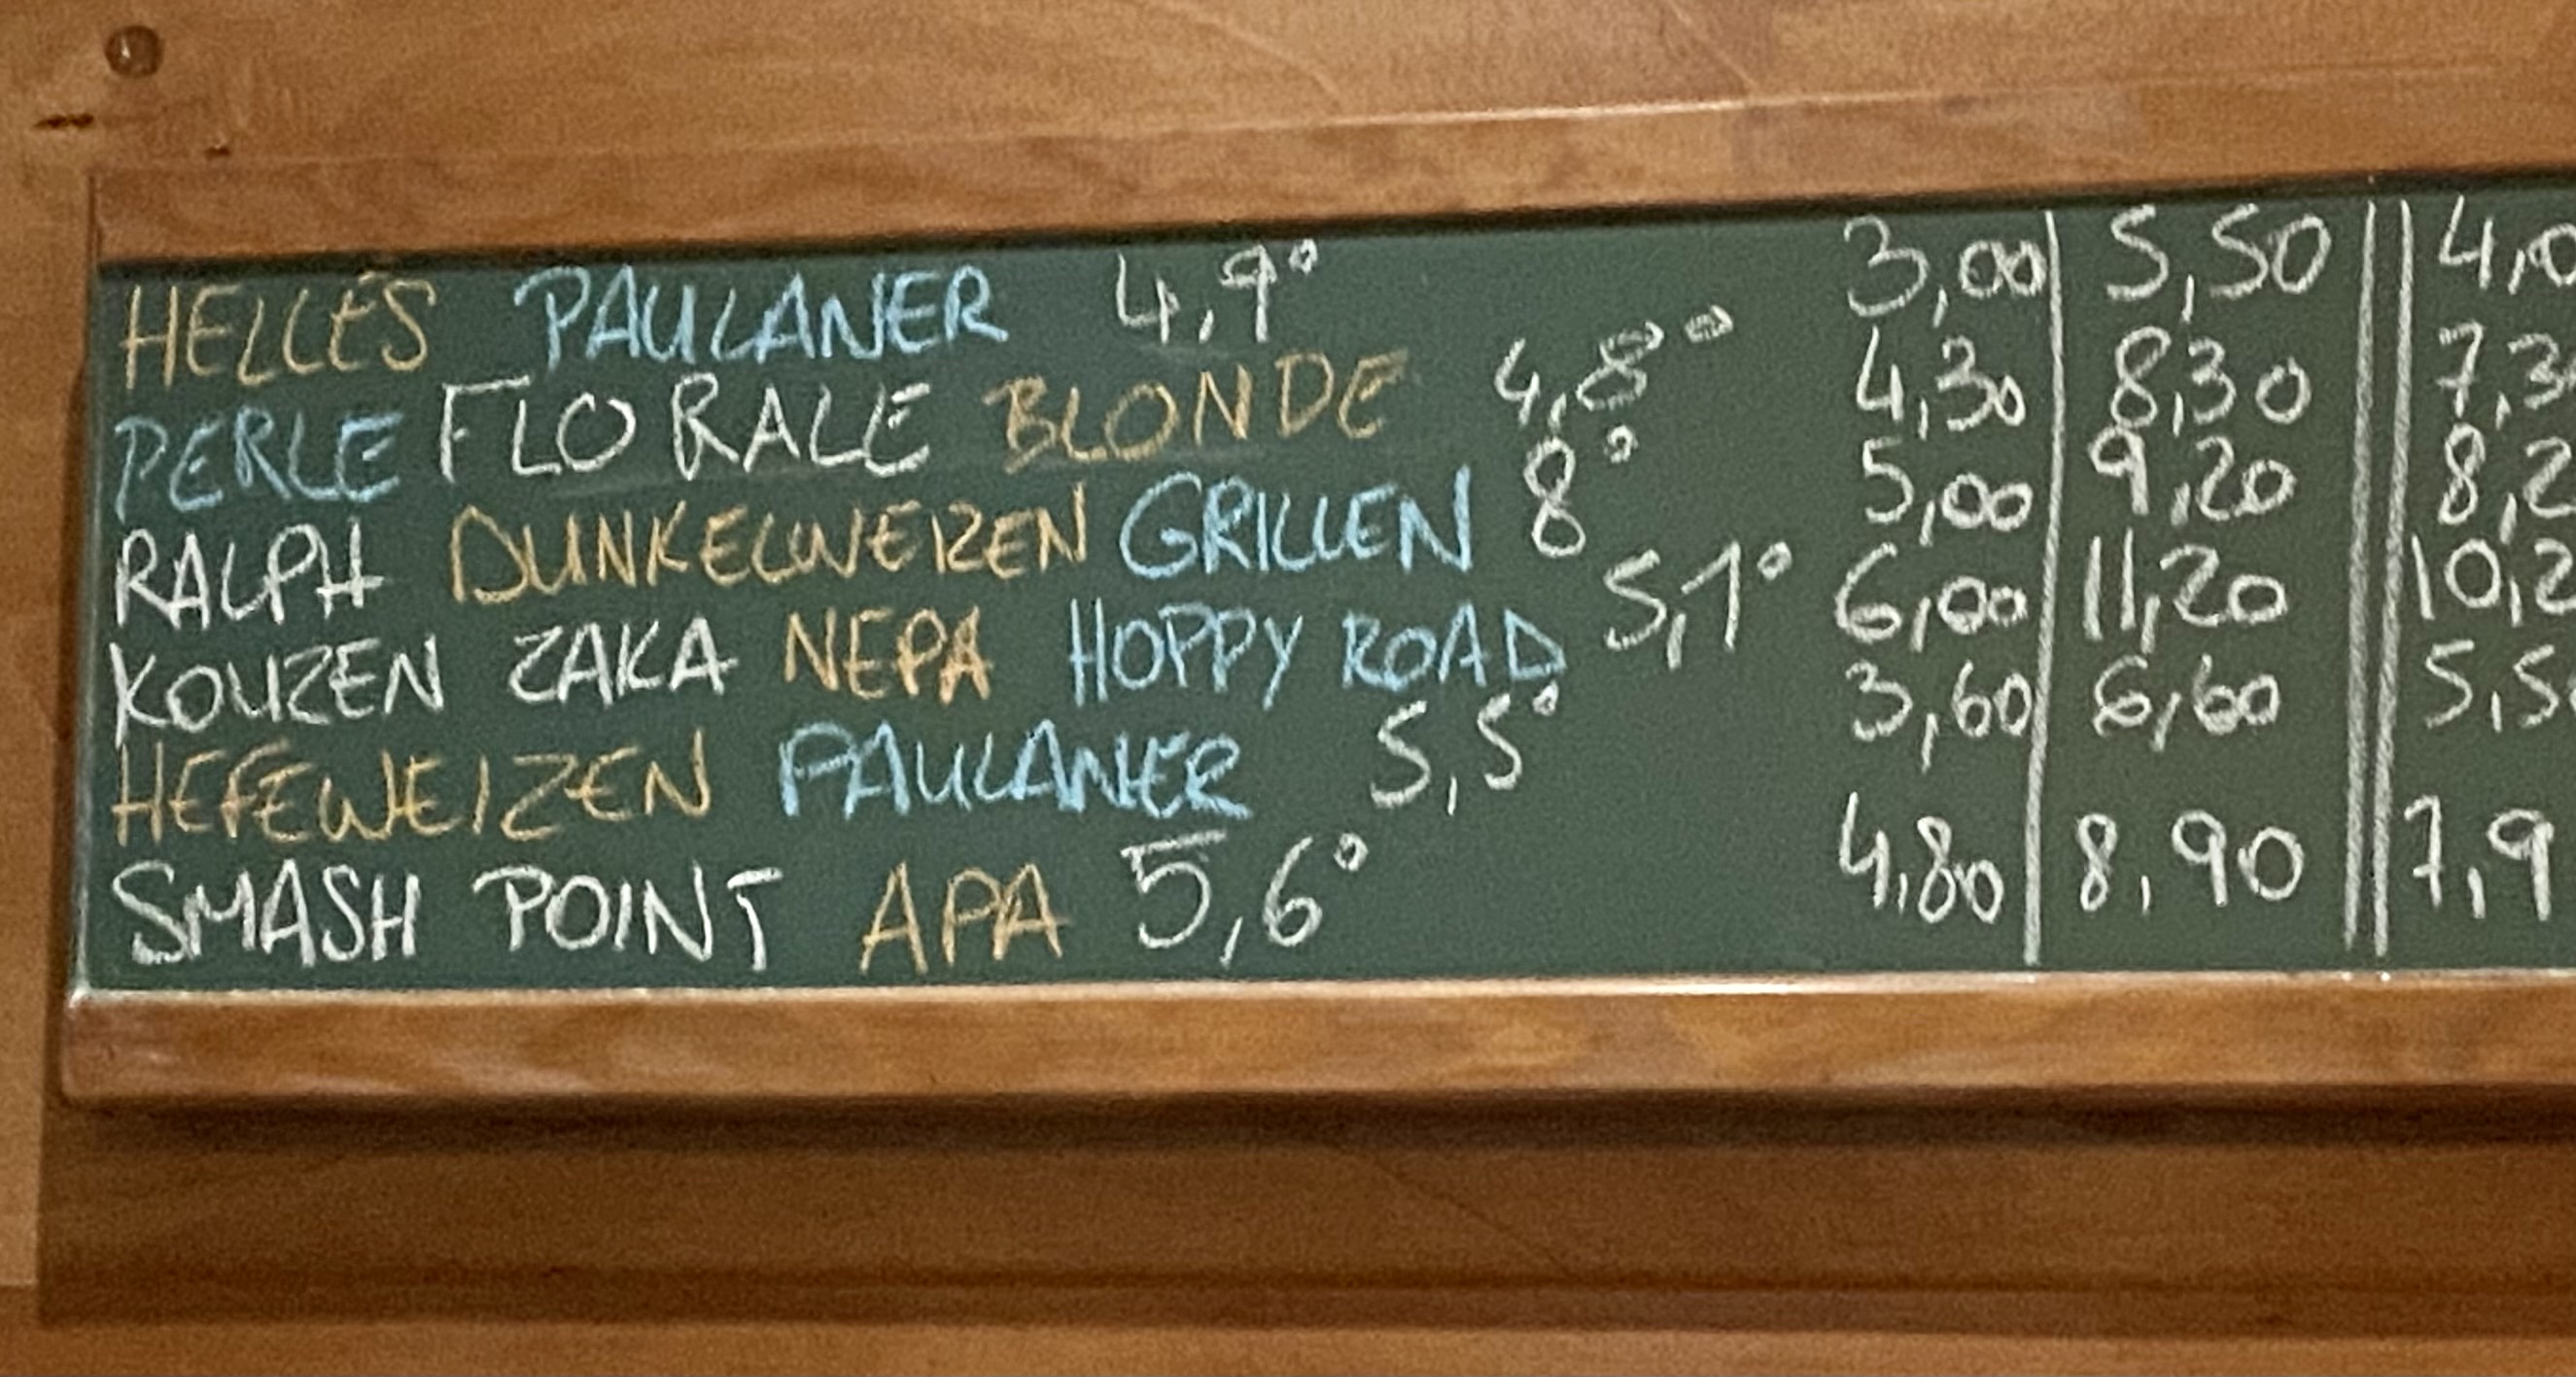 HELLES PAULANER 4,9° 3,00 5,50 4,0
PERLE FLORALE BLONDE 4,8° 4,30 8,30 7,3
RALPH DUNKELWEIZEN GRILLEN 8° 5,00 9,20 8,2
KOUZEN ZAKA NEPA HOPPY ROAD 5,1° 6,00 11,20 10,2
HEFEWEIZEN PAULANER 5,5° 3,60 6,60 5,5
SMASH POINT APA 5,6° 4,80 8,90 7,9